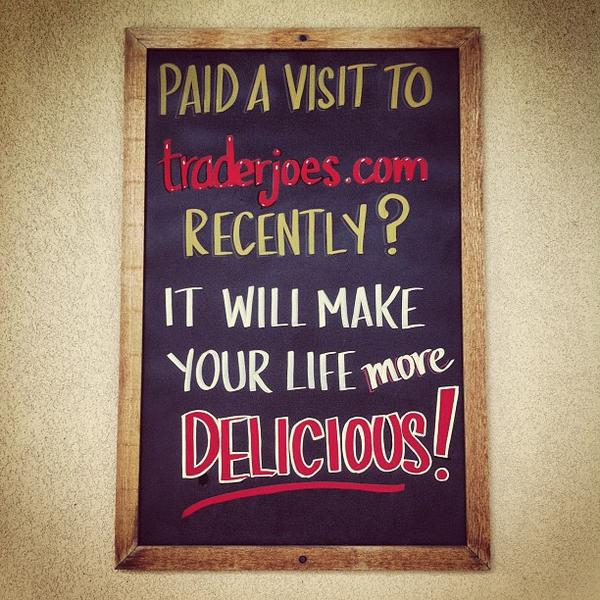 PAID A VISIT TO
traderjoes.com
RECENTLY?
IT WILL MAKE
YOUR LIFE more
DELICIOUS!